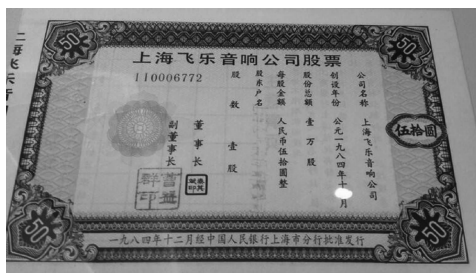 50
50
上海飞乐音响公司股票
110006772
公司名称 上海飞乐音响公司
创设年份 公元一九八四年十 月
股份总额 壹万股
每股金额 人民币伍拾圆整
股东户名
股数 壹股
董事长
副董事长
伍拾圆
50
50
一九八四年十二月经中国人民银行上海市分行批准发行